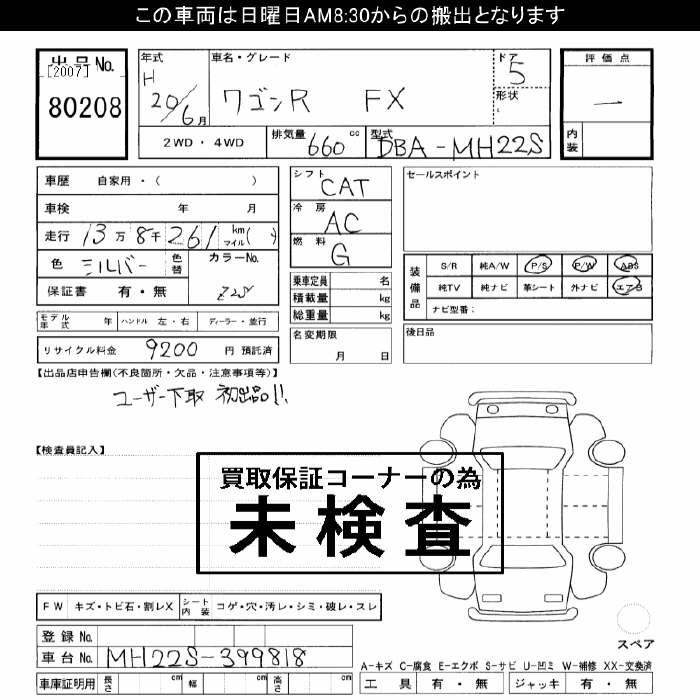 この車両は日曜日AM8:30からの搬出となります
出品No.
[2007]
80208
年式 H 20/6月
車名・グレード ワゴンR FX
ドア 5
形状
評価点 —
内装
2WD・4WD
排気量 660 cc
型式 DBA-MH22S
車歴 自家用・( )
車検 年 月
走行 13万8千261 km マイル( )
色 シルバー 色替 カラーNo. Z2S
保証書 有・無
シフト CAT
冷房 AC
燃料 G
乗車定員 名
積載量 kg
総重量 kg
セールスポイント
装備品
S/R 純A/W P/S P/W ABS
純TV 純ナビ 革シート 外ナビ エアB
ナビ型番:
モデル年式 年 ハンドル 左・右 ディーラー・並行
リサイクル料金 9200 円 預託済
名変期限
月 日
後日品
【出品店申告欄(不良箇所・欠品・注意事項等)】
ユーザー下取 初出品!!
【検査員記入】
買取保証コーナーの為
未検査
FW キズ・トビ石・割レX シート内装 コゲ・穴・汚レ・シミ・破レ・スレ
登録No.
車台No. MH22S-399818
車庫証明用 長さ cm 幅 cm 高さ cm
スペア
A-キズ C-腐食 E-エクボ S-サビ U-凹ミ W-補修 XX-交換済
工具 有・無 ジャッキ 有・無